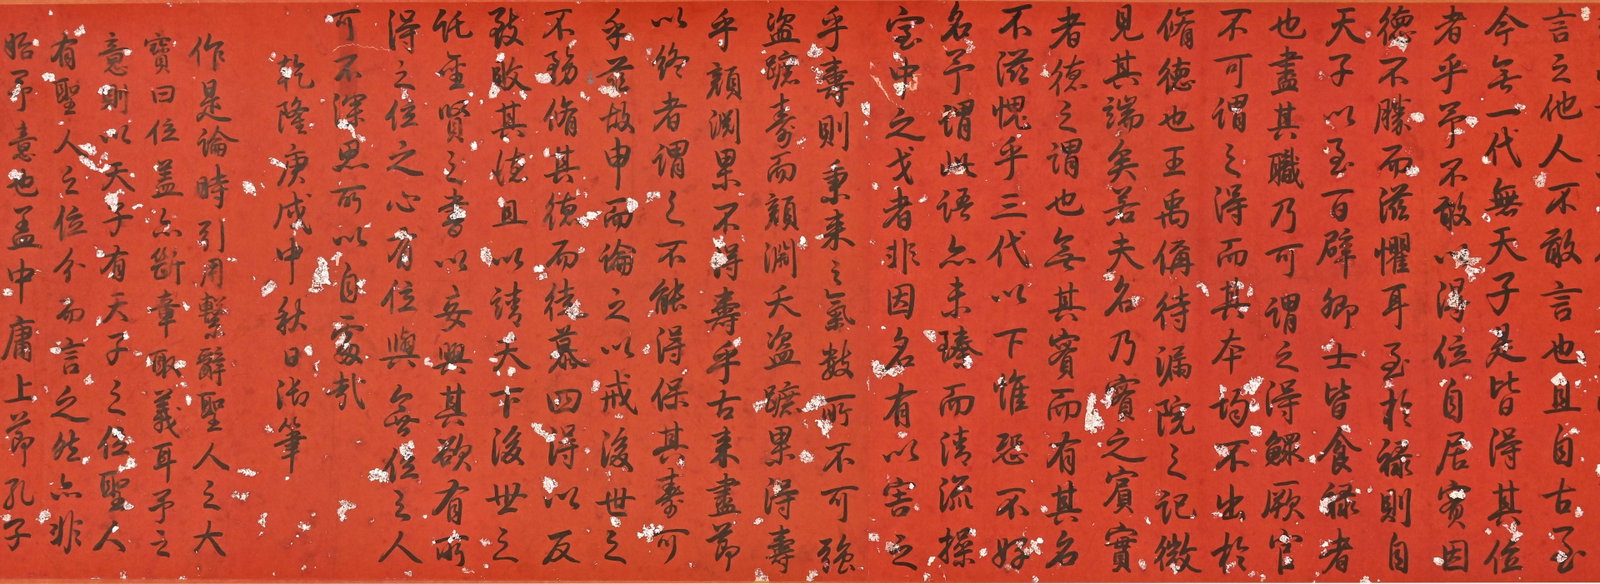 言之他人不敢言也且自古至
今無一代無天子是皆得其位
者乎予不敢以得位自居實因
德不勝而滋懼耳至於祿則自
天子以至百辟卿士皆食祿者
也盡其職乃可謂之得鰥厥官
不可謂之得而其本均不出於
脩德也王禹偁待漏院之記微
見其端矣若夫名乃實之賓實
者德之謂也無其實而有其名
不滋愧乎三代以下惟恐不好
名予謂此語亦未臻而清流操
室中之戈者非因名有以害之
乎壽則秉來之氣數所不可強
盜蹠壽而顏淵夭盜蹠果得壽
乎顏淵果不得壽乎古來盡節
以終者謂之不能得保其壽可
乎茲故申而論之以戒後世之
不務脩其德而徒慕四得以反
致敗其德且以請天下後世之
託聖賢之書以妄興其欲有所
得之位之心有位與無位之人
可不深思所以自處哉
乾隆庚戌中秋日御筆
作是論時引用繫辭聖人之大
寶曰位蓋亦斷章取義耳予之
意則以天子有天子之位聖人
有聖人之位分而言之然亦非
始予意也盖中庸上節孔子